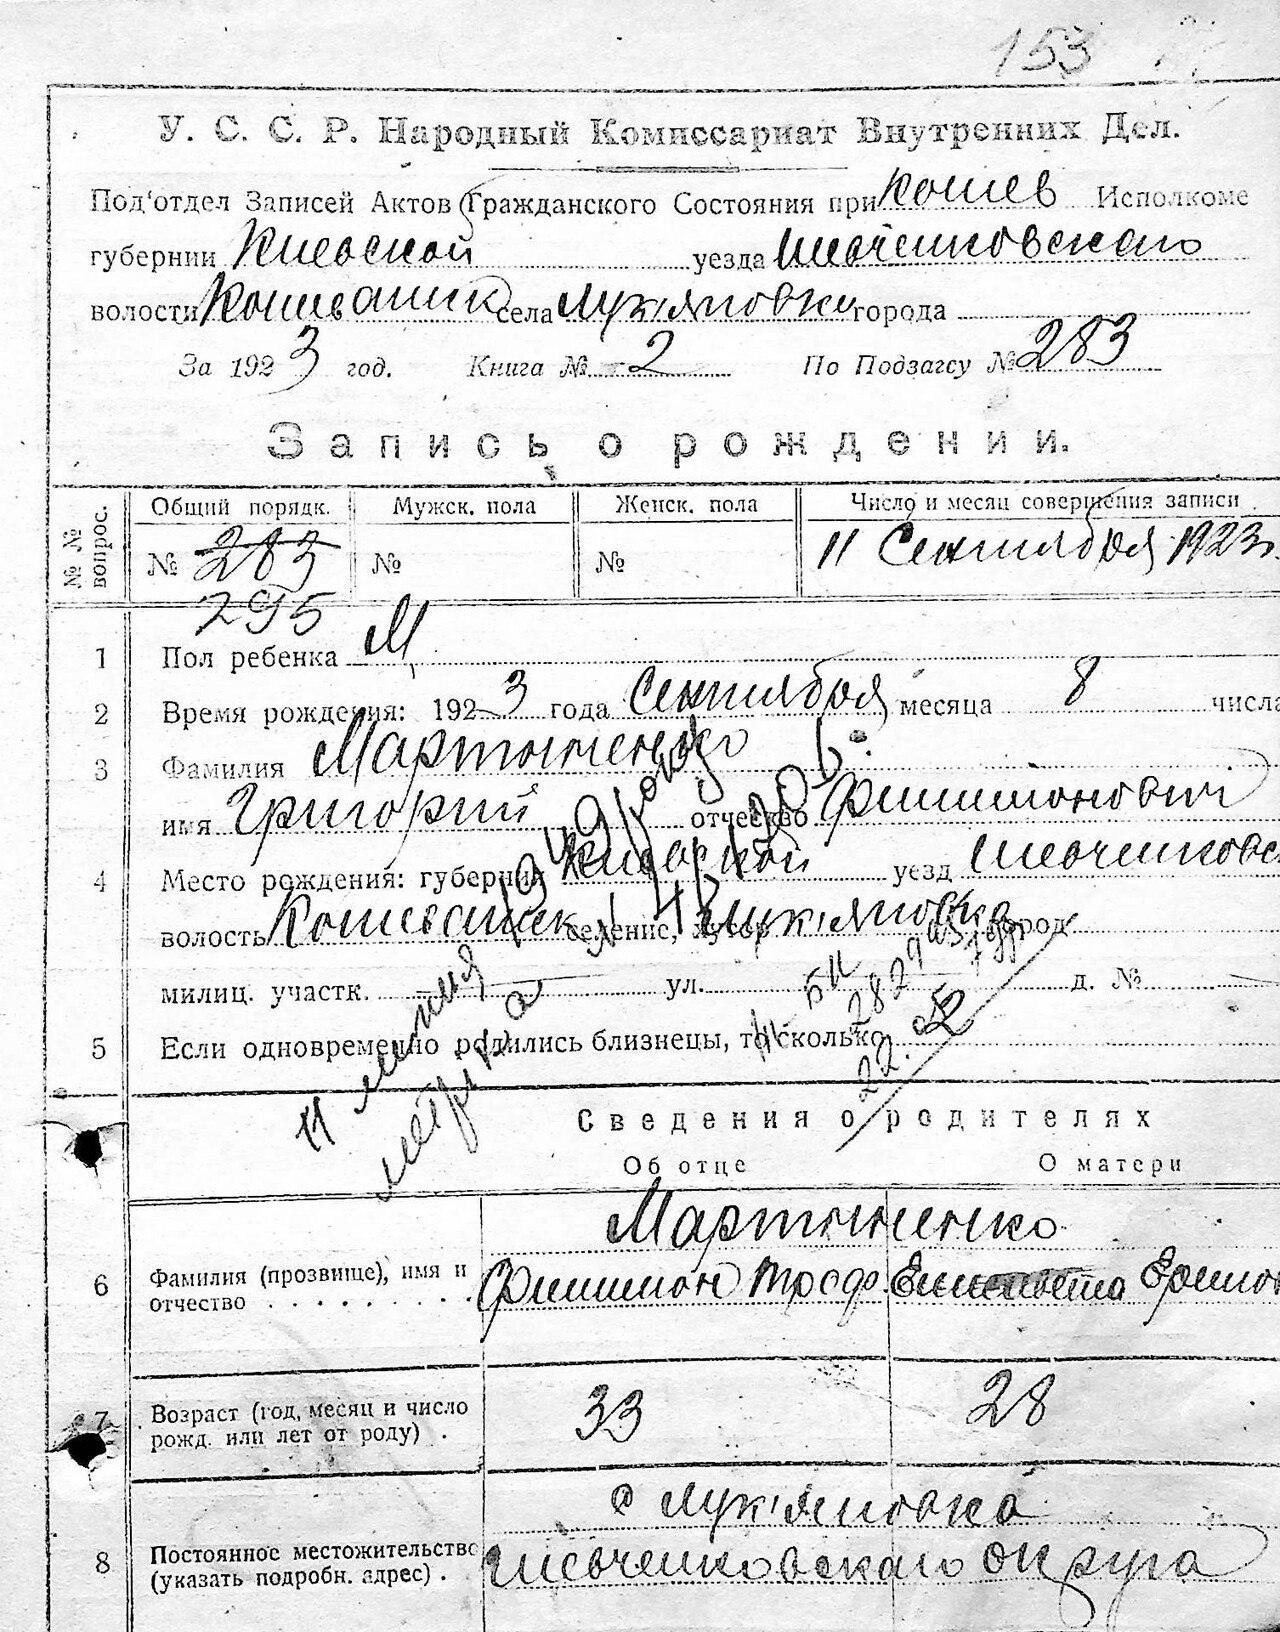 153
У. С. С. Р. Народный Комиссариат Внутренних Дел.
Под'отдел Записей Актов Гражданского Состояния при Кошев Исполкоме
губернии Киевской уезда Шевченковскаго
волости Кошеватск села Лук'яновки города
За 1923 год. Книга № 2 По Подзагсу № 283
Запись о рождении.
№ № вопрос.
Общий порядк. Мужск. пола Женск. пола Число и месяц совершения записи
№ 283 № № 11 Сентября 1923г.
295
1 Пол ребенка М
2 Время рождения: 1923 года Сентября месяца 8 числа
3 Фамилия Мартыненко
имя Григорий отчество Филимонович
4 Место рождения: губерния Киевской уезд Шевченковск
волость Кошеватск селение, хутор Лук'яновка город
милиц. участк. ул. д. №
5 Если одновременно родились близнецы, то сколько
Сведения о родителях
Об отце О матери
Мартыненко
6 Фамилия (прозвище), имя и Филимон Троф. Елисавета Ефимов
отчество
7 Возраст (год, месяц и число 33 28
рожд. или лет от роду)
с Лук'яновка
8 Постоянное местожительство Шевченковскаго округа
(указать подробн. адрес)